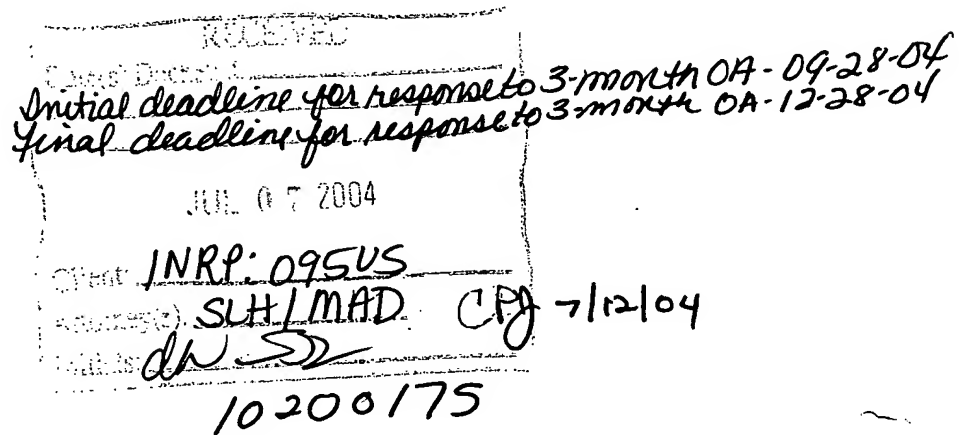 RECEIVED
Initial deadline for response to 3-month OA - 09-28-04
Final deadline for response to 3-month OA - 12-28-04
JUL 07 2004
Client: INRP: 095US
Attorney(s): SLH/MAD CPJ 7/12/04
Initials:
10200175